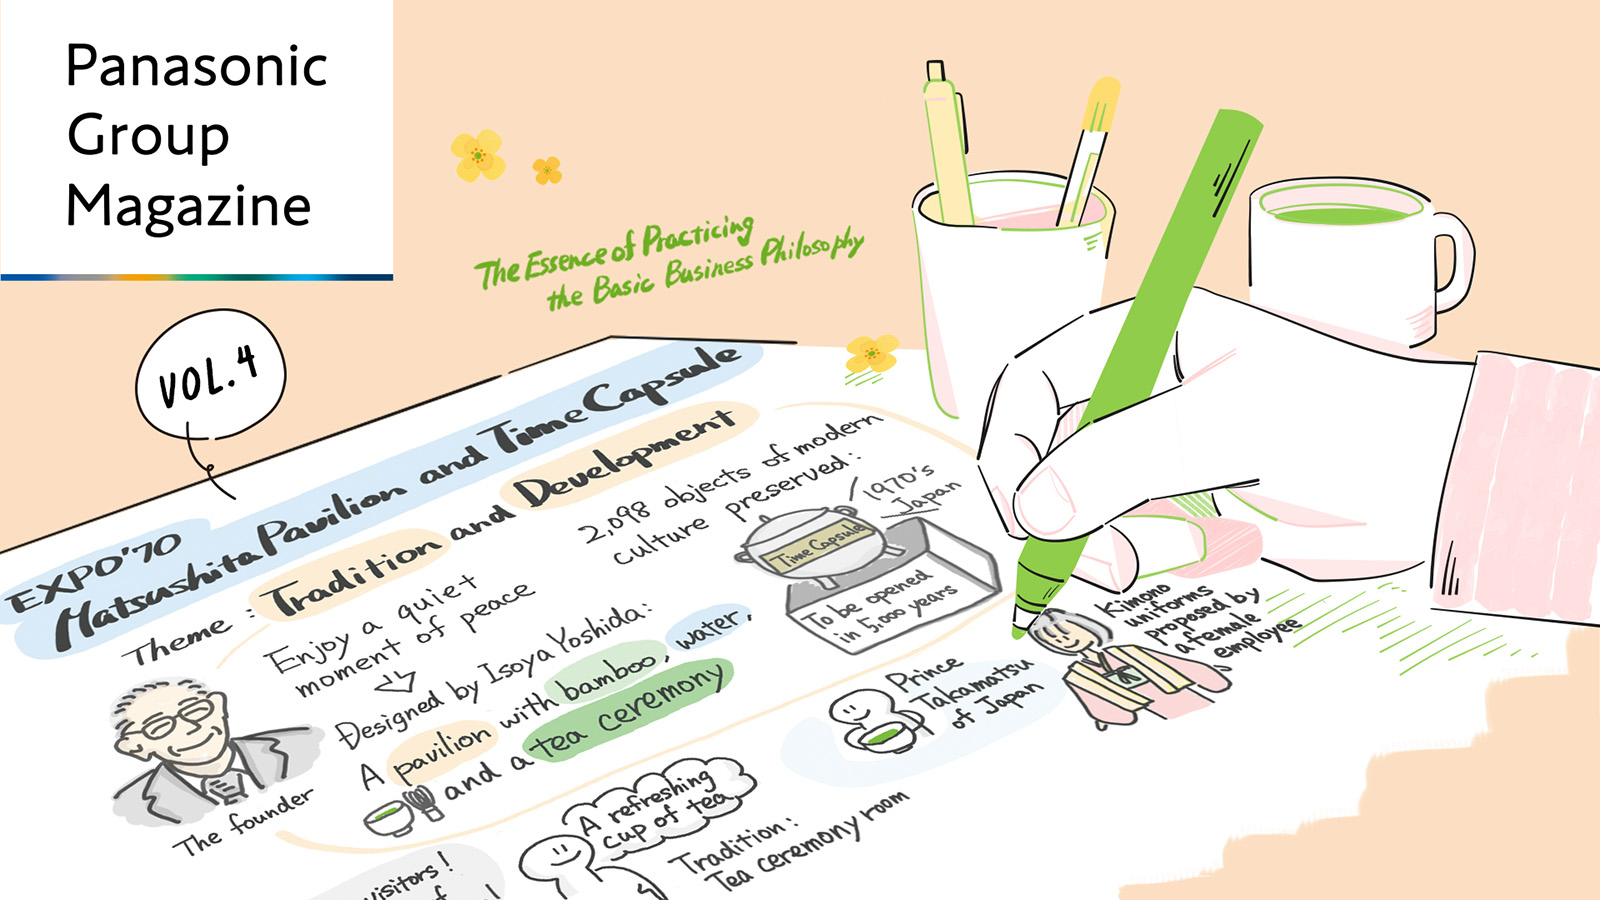 Panasonic
Group
Magazine
VOL.4
The Essence of Practicing
the Basic Business Philosophy
EXPO'70
Matsushita Pavilion and Time Capsule
Theme: Tradition and Development
Enjoy a quiet
moment of peace
Designed by Isoya Yoshida:
A pavilion with bamboo, water,
and a tea ceremony
The founder
2,098 objects of modern
culture preserved:
1970's
Japan
Time Capsule
To be opened
in 5,000 years
Kimono
uniforms
proposed by
a female
employee
Prince
Takamatsu
of Japan
A refreshing
cup of tea
Tradition:
Tea ceremony room
visitors!
of